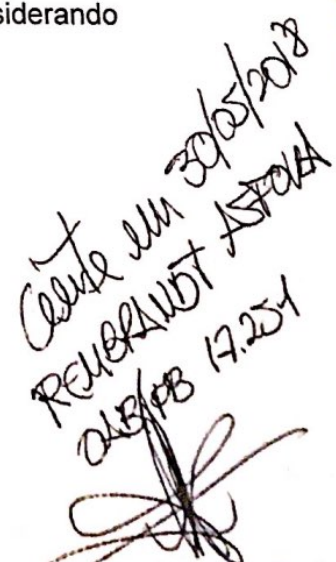 siderando
Ciente em 30/05/2018
REMBRANDT ASFORA
OAB/PB 17.251